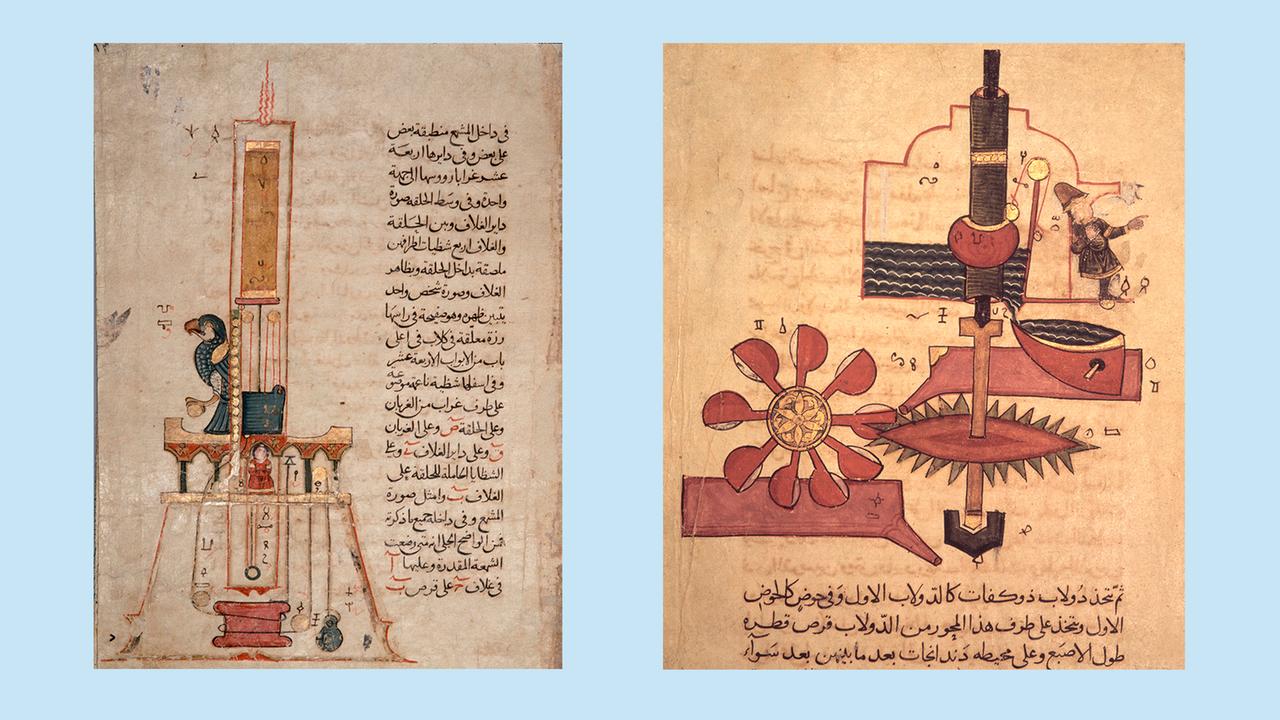 في داخل الشمع منطبقة بعض
على بعض وفي دايرها اربعة
عشر غرابا روسها الى جهة
واحدة وفي وسط الحلقة صورة
داير الغلاف وبين الحلقة
والغلاف اربع شظيات اطرافهن
ملصقة بداخل الحلقة وبظاهر
الغلاف وصورة شخص واحد
يتبين ظهره وهو صفيحة في راسها
رزة معلقة في كلاب في اعلى
باب من الابواب الاربعة عشر
وفي اسفلها شظية ناعمة
على طرف غراب من الغربان
وعلى الحلقة ص وعلى الغربان
ق وعلى داير الغلاف وعلى
الشظايا الحاملة للحلقة على
الغلاف وامثل صورة
الشمع وفي داخله جميع ما ذكرته
فمن الواضح الجلي انه متى وضعت
الشمعة المقدرة وعليها آ
في غلاف على قرص
ثم تتخذ دولاب ذو كفات كالدولاب الاول وفي حوض كالحوض
الاول ويتخذ على طرف هذا المحور من الدولاب قرص قطره
طول الاصبع وعلى محيطه دندانجات بعد ما بينهن بعد سواء